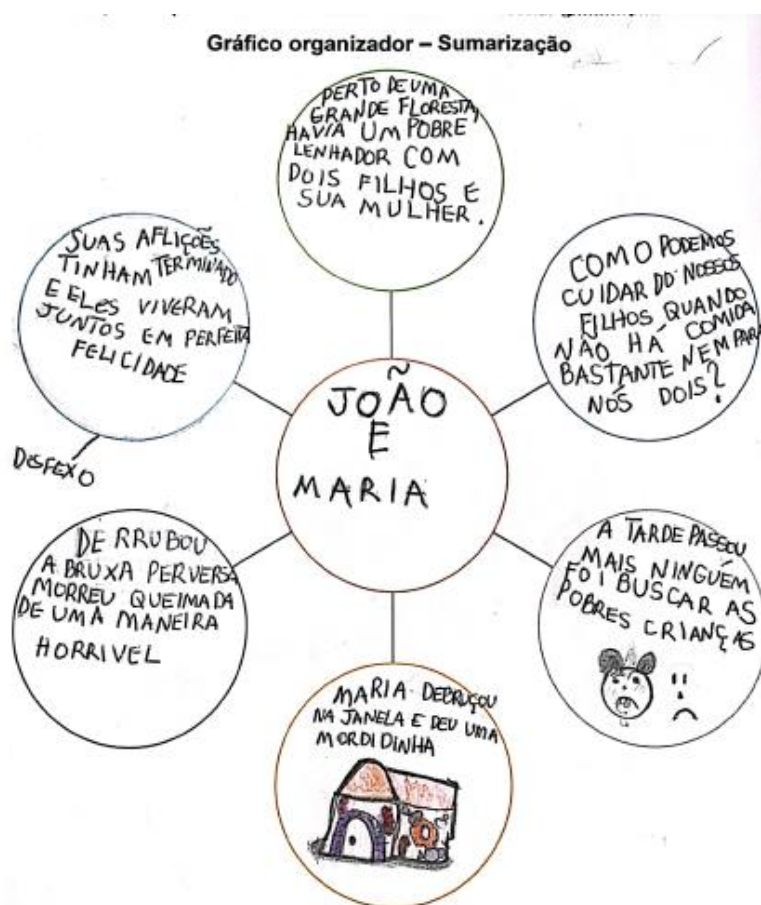 Gráfico organizador – Sumarização
PERTO DE UMA
GRANDE FLORESTA,
HAVIA UM POBRE
LENHADOR COM
DOIS FILHOS E
SUA MULHER.
COMO PODEMOS
CUIDAR DO NOSSOS
FILHOS QUANDO
NÃO HÁ COMIDA
BASTANTE NEM PARA
NÓS DOIS?
A TARDE PASSOU
MAIS NINGUÉM
FOI BUSCAR AS
POBRES CRIANÇAS
MARIA DEBRUÇOU
NA JANELA E DEU UMA
MORDIDINHA
DERRUBOU
A BRUXA PERVERSA
MORREU QUEIMADA
DE UMA MANEIRA
HORRIVEL
SUAS AFLIÇÕES
TINHAM TERMINADO
E ELES VIVERAM
JUNTOS EM PERFEITA
FELICIDADE
DESFEXO
JOÃO
E
MARIA